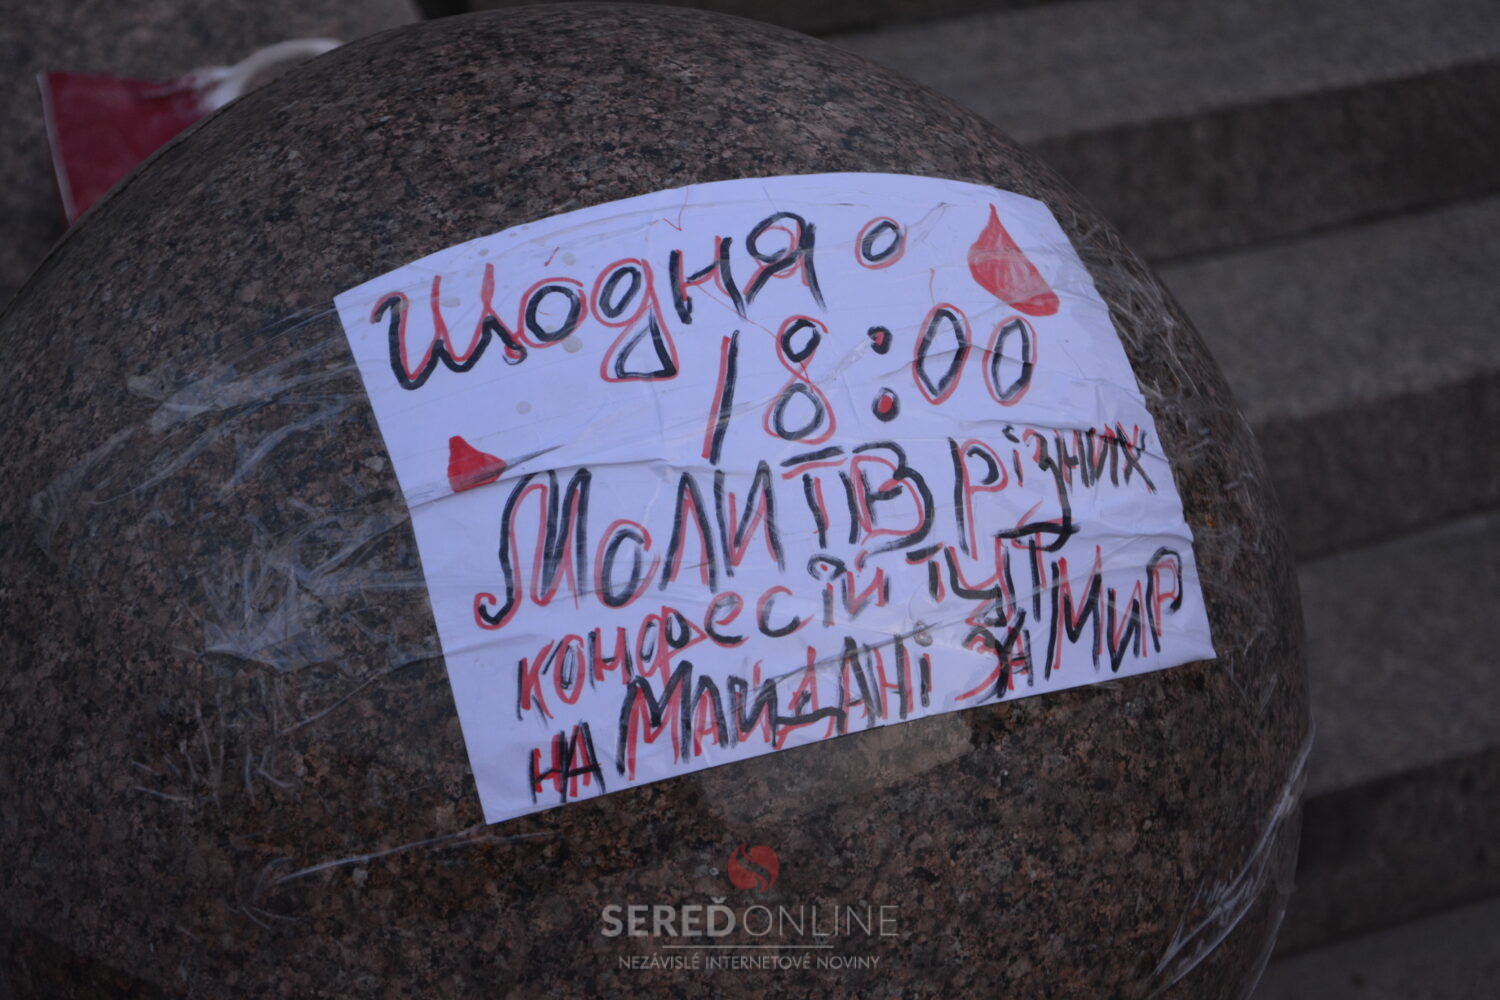 Щодня о
18:00
Молитв різних
конфесій тут
на Майдані за мир
SEREĎ ONLINE
NEZÁVISLÉ INTERNETOVÉ NOVINY